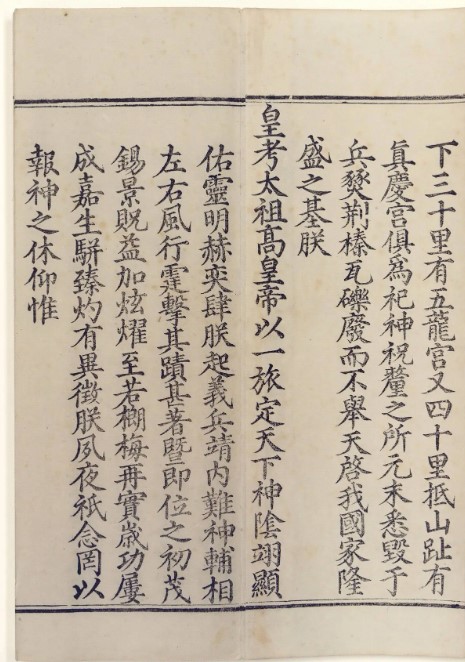 下三十里有五龍宮又四十里抵山趾有
真慶宮俱為祀神祝釐之所元末悉毀于
兵燹荆榛瓦礫廢而不舉天啓我國家隆
盛之基朕
皇考太祖高皇帝以一旅定天下神陰翊顯
佑靈明赫奕肆朕起義兵靖內難神輔相
左右風行霆擊其蹟甚著暨即位之初茂
錫景貺益加炫燿至若榔梅再實歲功屢
成嘉生駢臻灼有異徵朕夙夜祇念罔以
報神之休仰惟